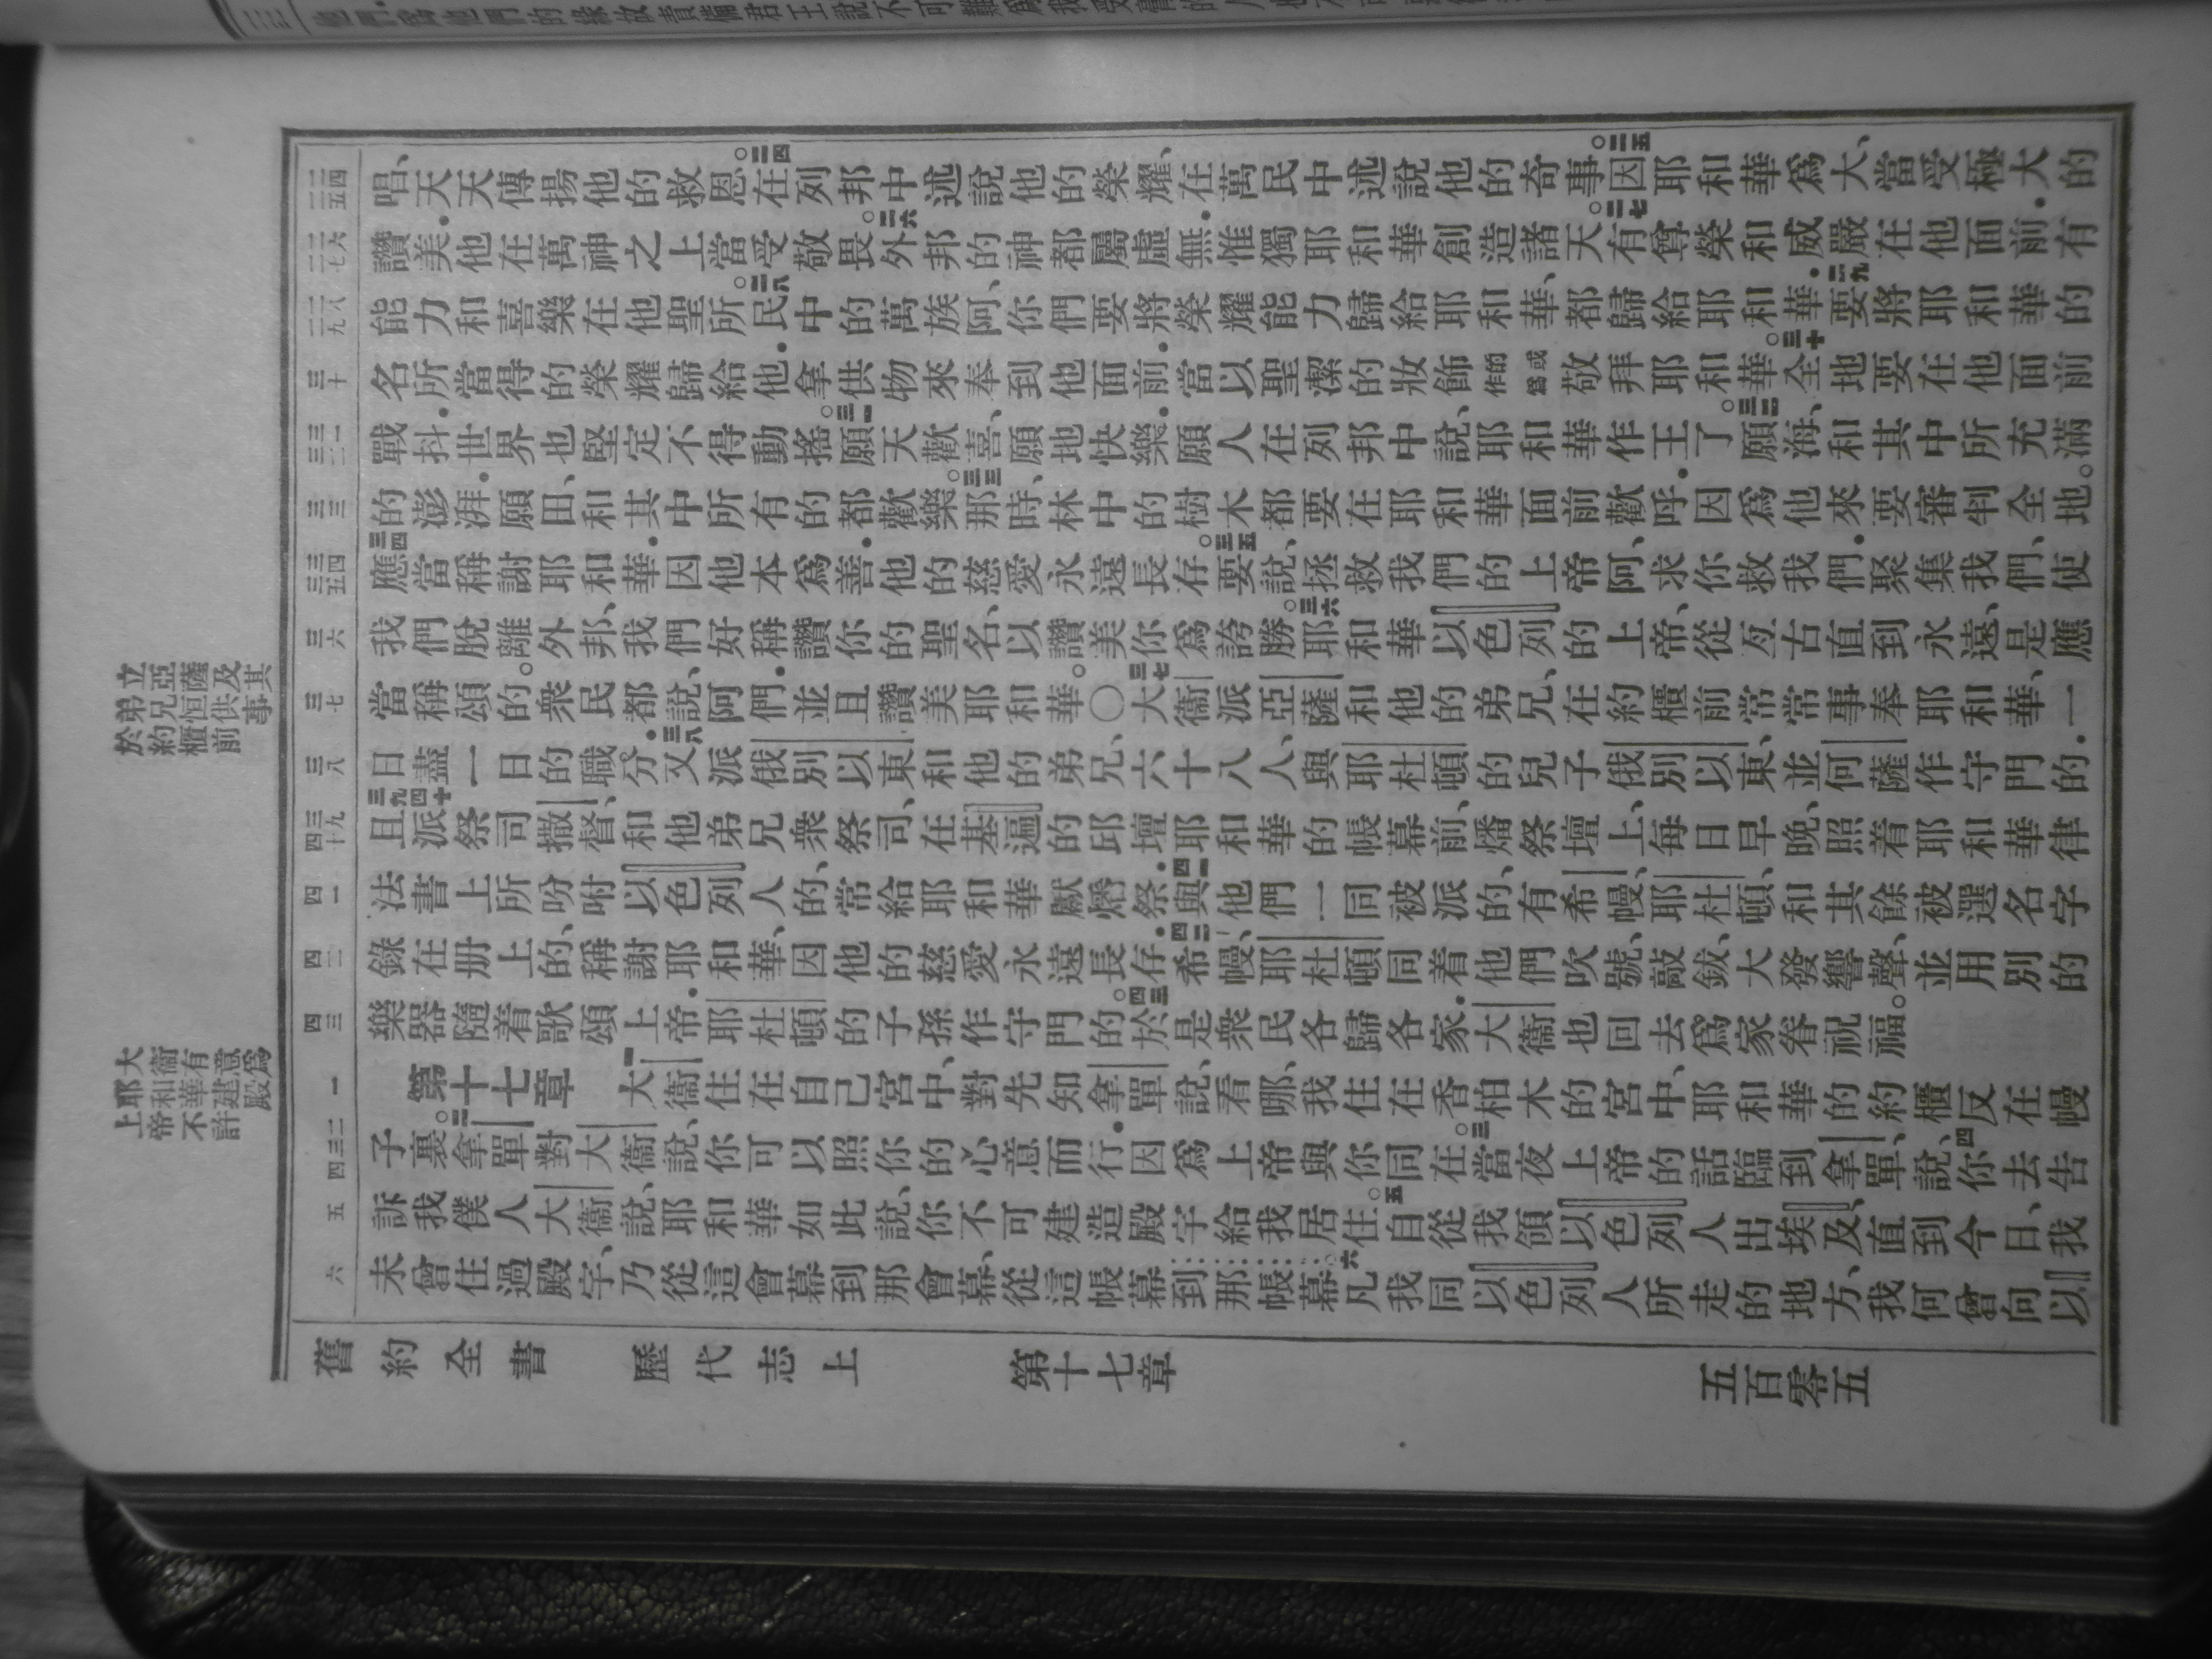 唱、天天傳揚他的救恩。二四在列邦中述說他的榮耀、在萬民中述說他的奇事。二五因耶和華爲大、當受極大的
讚美.他在萬神之上當受敬畏。二六外邦的神都屬虛無.惟獨耶和華創造諸天。二七有尊榮和威嚴在他面前.有
能力和喜樂在他聖所。二八民中的萬族阿、你們要將榮耀能力歸給耶和華、都歸給耶和華.二九要將耶和華的
名所當得的榮耀歸給他.拿供物來奉到他面前.當以聖潔的妝飾的或作爲敬拜耶和華。三十全地要在他面前
戰抖.世界也堅定不得動搖。三一願天歡喜、願地快樂.願人在列邦中說、耶和華作王了。三二願海、和其中所充滿
的澎湃.願田、和其中所有的都歡樂。三三那時、林中的樹木都要在耶和華面前歡呼.因爲他來要審判全地。
三四應當稱謝耶和華.因他本爲善.他的慈愛永遠長存。三五要說、拯救我們的上帝阿、求你救我們.聚集我們、使
我們脫離外邦、我們好稱讚你的聖名、以讚美你爲誇勝。三六耶和華以色列的上帝、從亙古直到永遠、是應
當稱頌的。衆民都說、阿們.並且讚美耶和華。○三七大衞派亞薩和他的弟兄、在約櫃前常常事奉耶和華、一
日盡一日的職分.三八又派俄別以東和他的弟兄、六十八人、與耶杜頓的兒子俄別以東、並何薩作守門的.
三九且派祭司撒督、和他弟兄衆祭司、在基遍的邱壇耶和華的帳幕前、四十燔祭壇上、每日早晚、照着耶和華律
法書上所吩咐以色列人的、常給耶和華獻燔祭.四一與他們一同被派的、有希幔、耶杜頓、和其餘被選名字
錄在册上的、稱謝耶和華、因他的慈愛永遠長存.四二希幔、耶杜頓同着他們吹號、敲鈸、大發響聲、並用別的
樂器隨着歌頌上帝.耶杜頓的子孫作守門的。四三於是衆民各歸各家.大衞也回去爲家眷祝福。
第十七章 一大衞住在自己宮中、對先知拿單說、看哪、我住在香柏木的宮中、耶和華的約櫃反在幔
子裏。二拿單對大衞說、你可以照你的心意而行.因爲上帝與你同在。三當夜上帝的話臨到拿單、說、四你去告
訴我僕人大衞說、耶和華如此說、你不可建造殿宇給我居住。五自從我領以色列人出埃及、直到今日、我
未曾住過殿宇、乃從這會幕到那會幕、從這帳幕到那帳幕。六凡我同以色列人所走的地方、我何曾向以
舊約全書 歷代志上 第十七章 五百零五
二四
二五
二六
二七
二八
二九
三十
三一
三二
三三
三四
三五
三六
三七
三八
三九
四十
四一
四二
四三
一
二
三
四
五
六
立亞薩及其
弟兄恒供事
於約櫃前
大衞有意爲
耶和華建殿
上帝不許